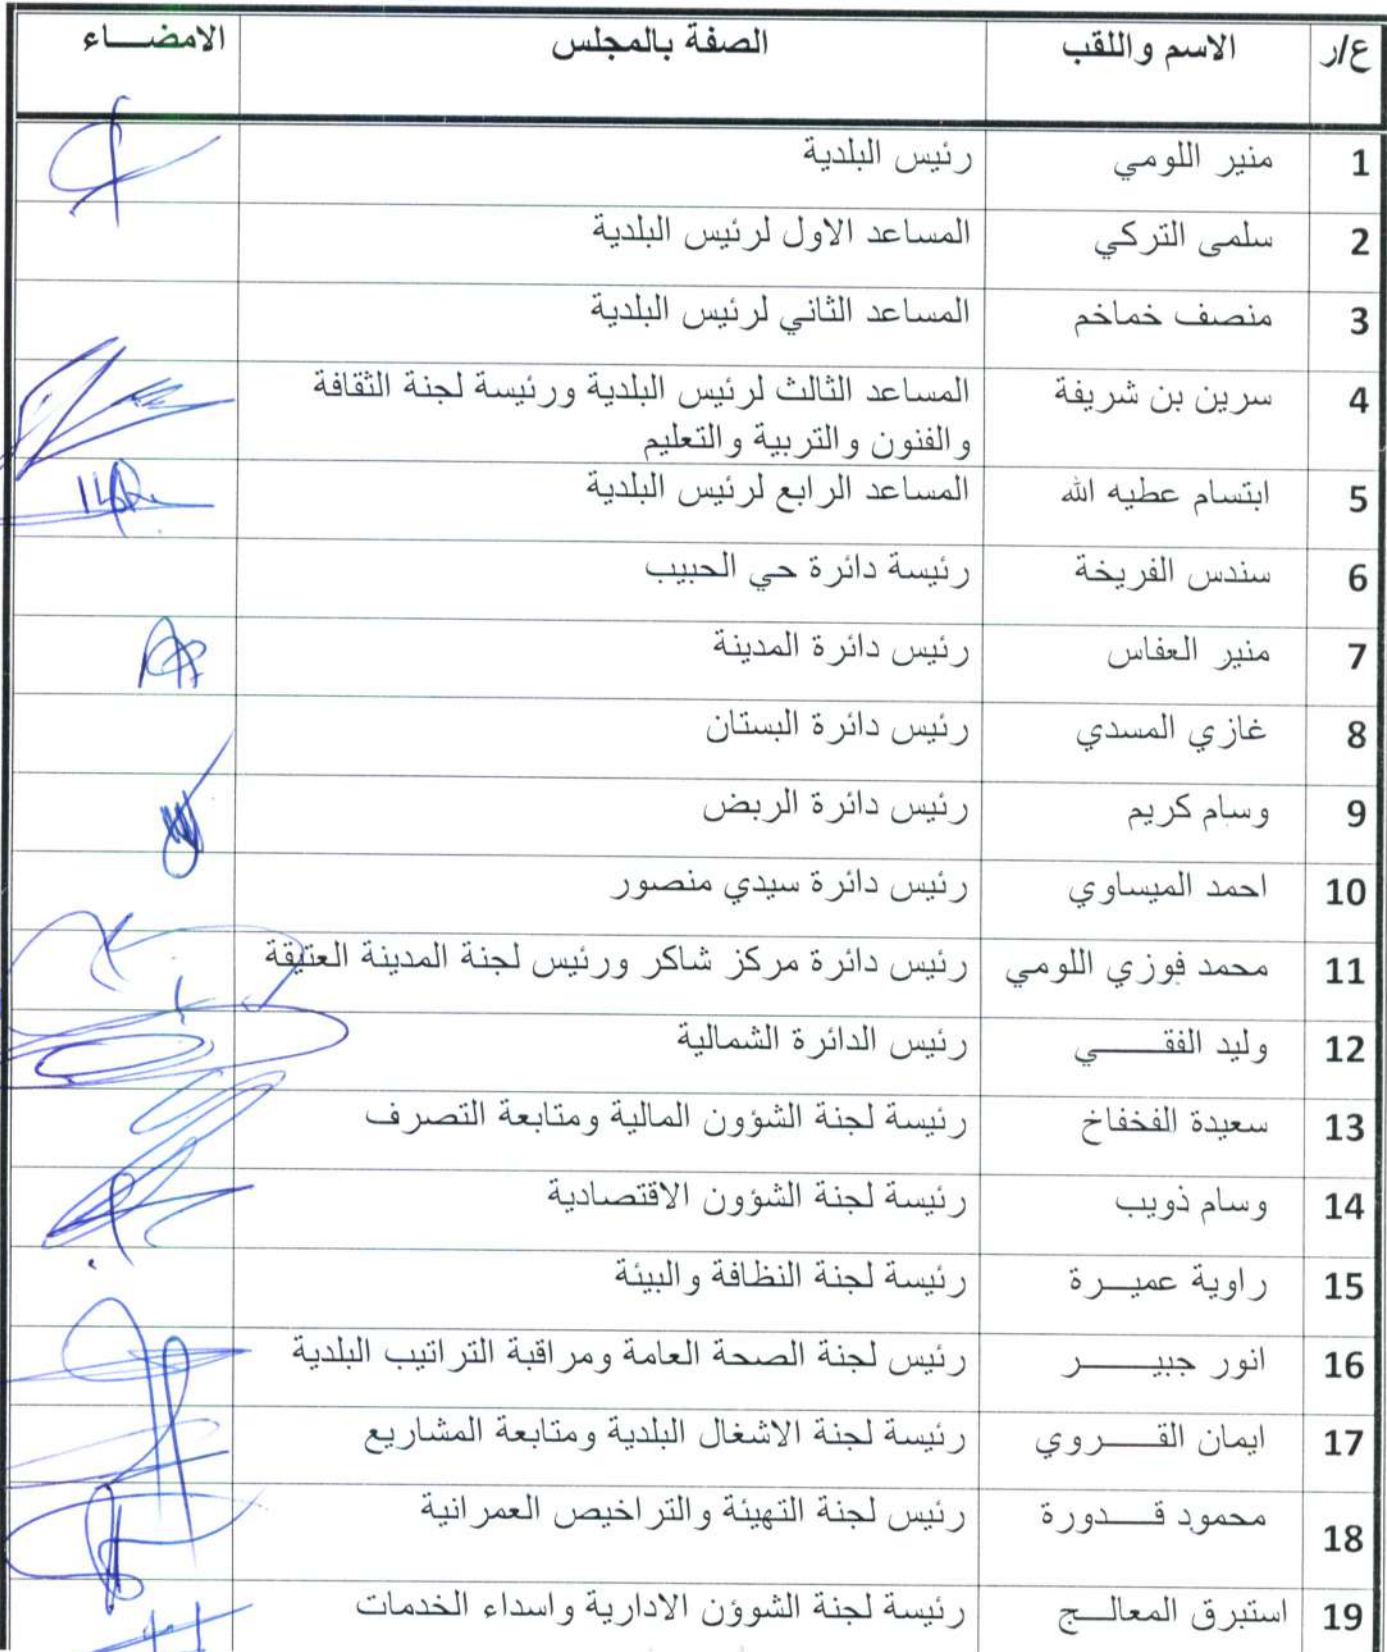 ع/ر الاسم واللقب الصفة بالمجلس الامضـــاء
1 منير اللومي رئيس البلدية
2 سلمى التركي المساعد الاول لرئيس البلدية
3 منصف خماخم المساعد الثاني لرئيس البلدية
4 سرين بن شريفة المساعد الثالث لرئيس البلدية ورئيسة لجنة الثقافة
والفنون والتربية والتعليم
5 ابتسام عطيه الله المساعد الرابع لرئيس البلدية
6 سندس الفريخة رئيسة دائرة حي الحبيب
7 منير العفاس رئيس دائرة المدينة
8 غازي المسدي رئيس دائرة البستان
9 وسام كريم رئيس دائرة الربض
10 احمد الميساوي رئيس دائرة سيدي منصور
11 محمد فوزي اللومي رئيس دائرة مركز شاكر ورئيس لجنة المدينة العتيقة
12 وليد الفقـــــي رئيس الدائرة الشمالية
13 سعيدة الفخفاخ رئيسة لجنة الشؤون المالية ومتابعة التصرف
14 وسام ذويب رئيسة لجنة الشؤون الاقتصادية
15 راوية عميـــرة رئيسة لجنة النظافة والبيئة
16 انور جبيـــــر رئيس لجنة الصحة العامة ومراقبة التراتيب البلدية
17 ايمان القـــروي رئيسة لجنة الاشغال البلدية ومتابعة المشاريع
18 محمود قـــدورة رئيس لجنة التهيئة والتراخيص العمرانية
19 استبرق المعالـــج رئيسة لجنة الشوؤن الادارية واسداء الخدمات